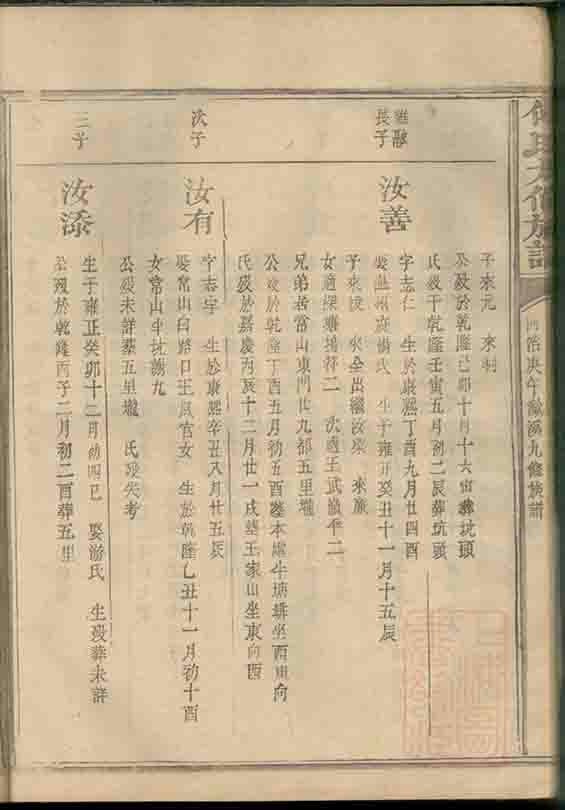 氏大修族譜
治庚午 溪九修族譜
子來元 來
公歿於乾隆己卯十月十六寅葬坑頭
氏歿于乾隆壬寅五月初二辰葬坑頭
長子
汝善
字志仁 生於康熙丁酉九月廿四酉
氏 生于雍正癸丑十一月十五辰
子來 來全出繼汝 來
女適 次適王武
兄弟居常山東門廿九都五里壠
公歿於乾隆丁酉五月初五酉墓本 牛塘 坐西東向
氏歿於嘉慶丙辰十二月廿一戌墓王家山坐東向西
次子
汝有
字志宇 生於康熙辛丑八月廿五辰
娶常山白路口王 官女 生於乾隆乙丑十一月初十酉
女常山牛坑 九
公歿未詳葬五里壠 氏歿失考
三子
汝添
生于雍正癸卯十二月初四巳 娶游氏 生歿葬未詳
公歿於乾隆丙子二月初二酉葬五里